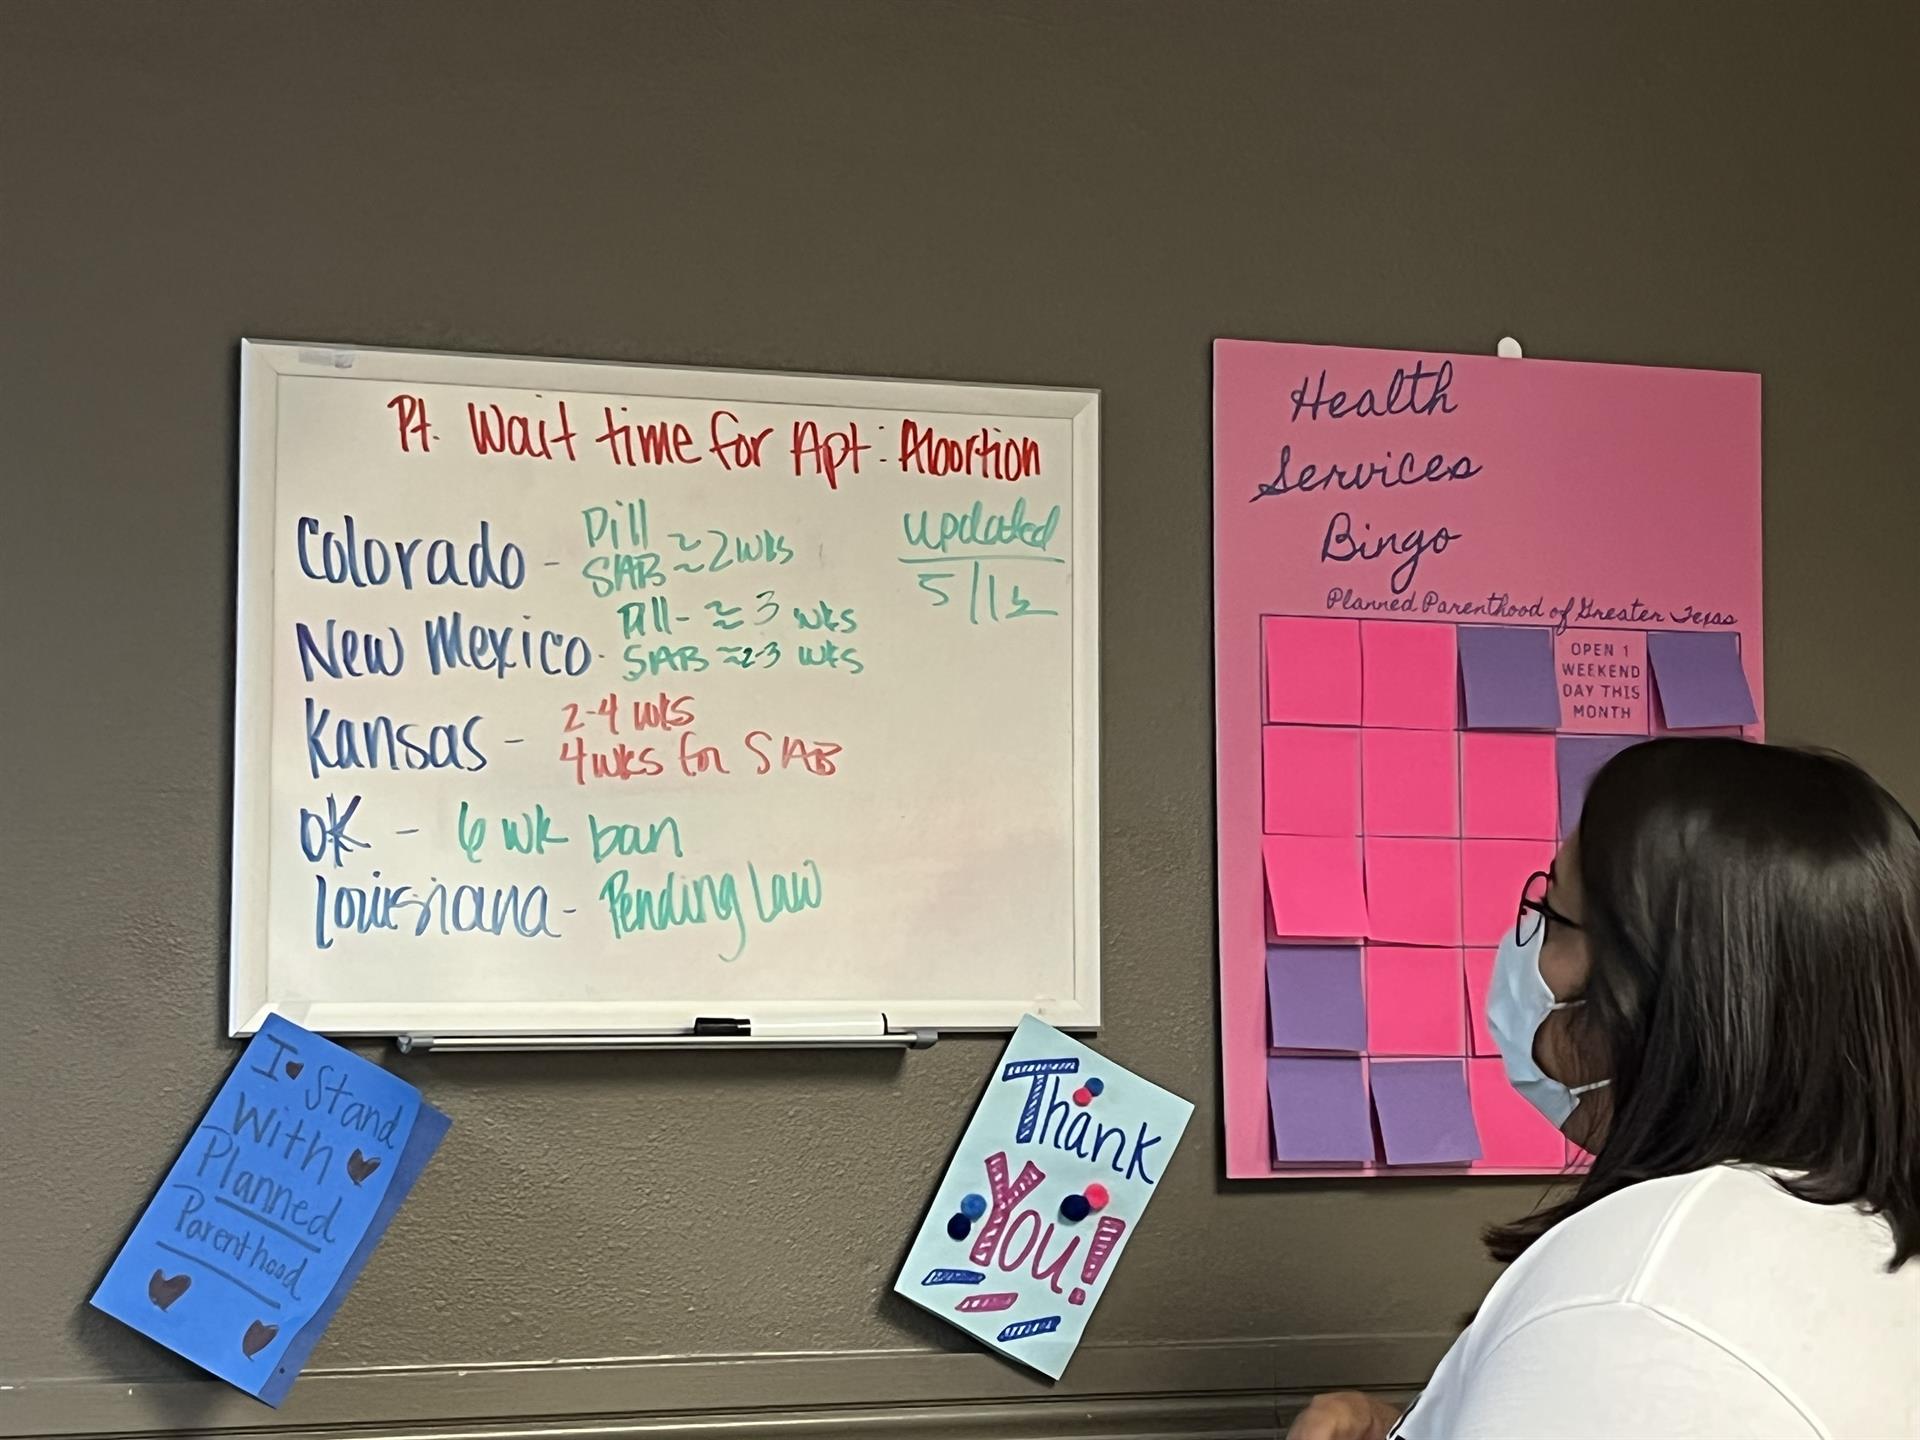 Pt. Wait time for Apt: Abortion
updated
Colorado - Pill
SAB ≈ 2 wks
New Mexico - Pill - ≈ 3 wks
SAB ≈ 2-3 wks
Kansas - 2-4 wks
4 wks for SAB
OK - 6 wk ban
Louisiana - Pending Law
I Stand
With
Planned
Parenthood
Thank
You!
Health
Services
Bingo
Planned Parenthood of Greater Texas
OPEN 1
WEEKEND
DAY THIS
MONTH